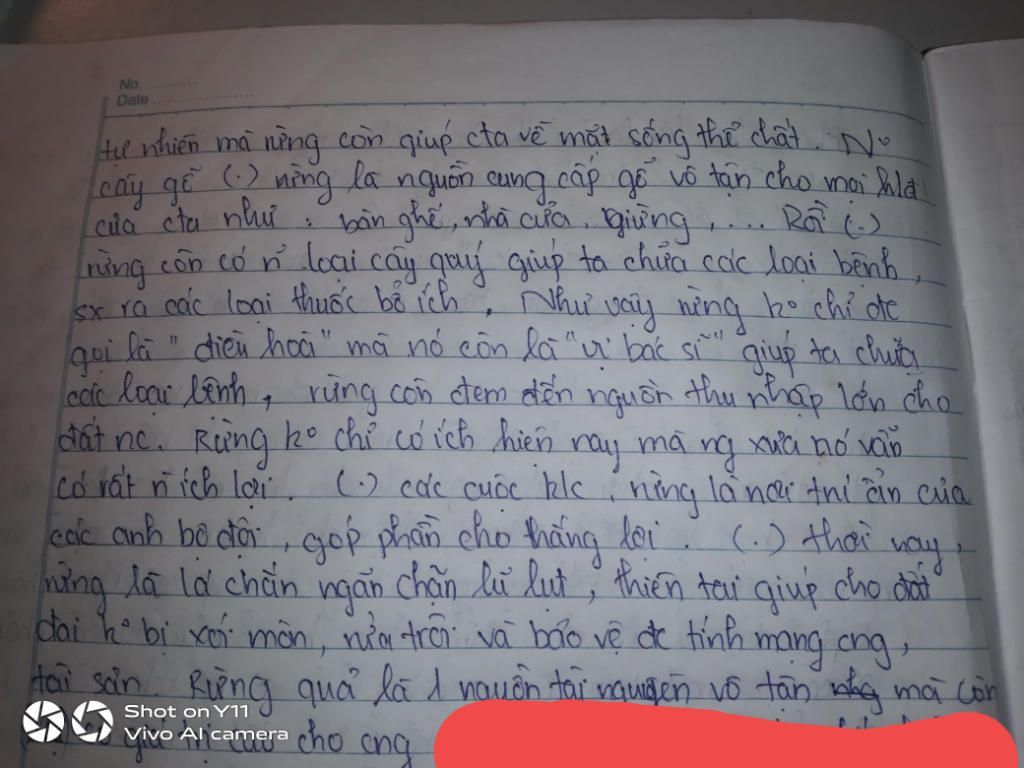 No. ..........
Date ....................
tự nhiên mà rừng còn giúp cta về mặt sống thể chất. N°
cây gỗ (.) rừng là nguồn cung cấp gỗ vô tận cho mọi
của cta như : bàn ghế, nhà cửa, giừng, .... Rồi (.)
rừng còn có n̄ loại cây quý giúp ta chữa các loại bệnh,
sx ra các loại thuốc bổ ích. Như vậy rừng k° chỉ đc
gọi là " điều hoà " mà nó còn là " vị bác sĩ " giúp ta chữa
các loại bệnh, rừng còn đem đến nguồn thu nhập lớn cho
đất nc. Rừng k° chỉ có ích hiện nay mà ng xưa nó vẫn
có rất n̄ ích lợi. (.) các cuộc k/c, rừng là nơi trí ẩn của
các anh bộ đội, góp phần cho thắng lợi. (.) thời nay,
rừng là lá chắn ngăn chặn lũ lụt, thiên tai giúp cho đất
đai k° bị xói mòn, rửa trôi và bảo vệ đc tính mạng cng,
tài sản. Rừng quả là 1 nguồn tài nguyên vô tận mà còn
giá trị cao cho cng
Shot on Y11
Vivo AI camera